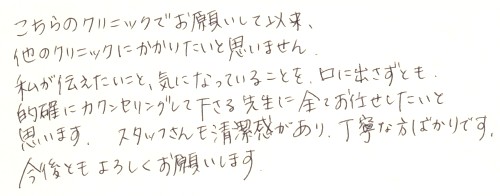 こちらのクリニックでお願いして以来、
他のクリニックにかかりたいと思いません.
私が伝えたいこと、気になっていることを、口に出さずとも、
的確にカウンセリングして下さる先生に全てお任せしたいと
思います. スタッフさんも清潔感があり、丁寧な方ばかりです.
今後ともよろしくお願いします.